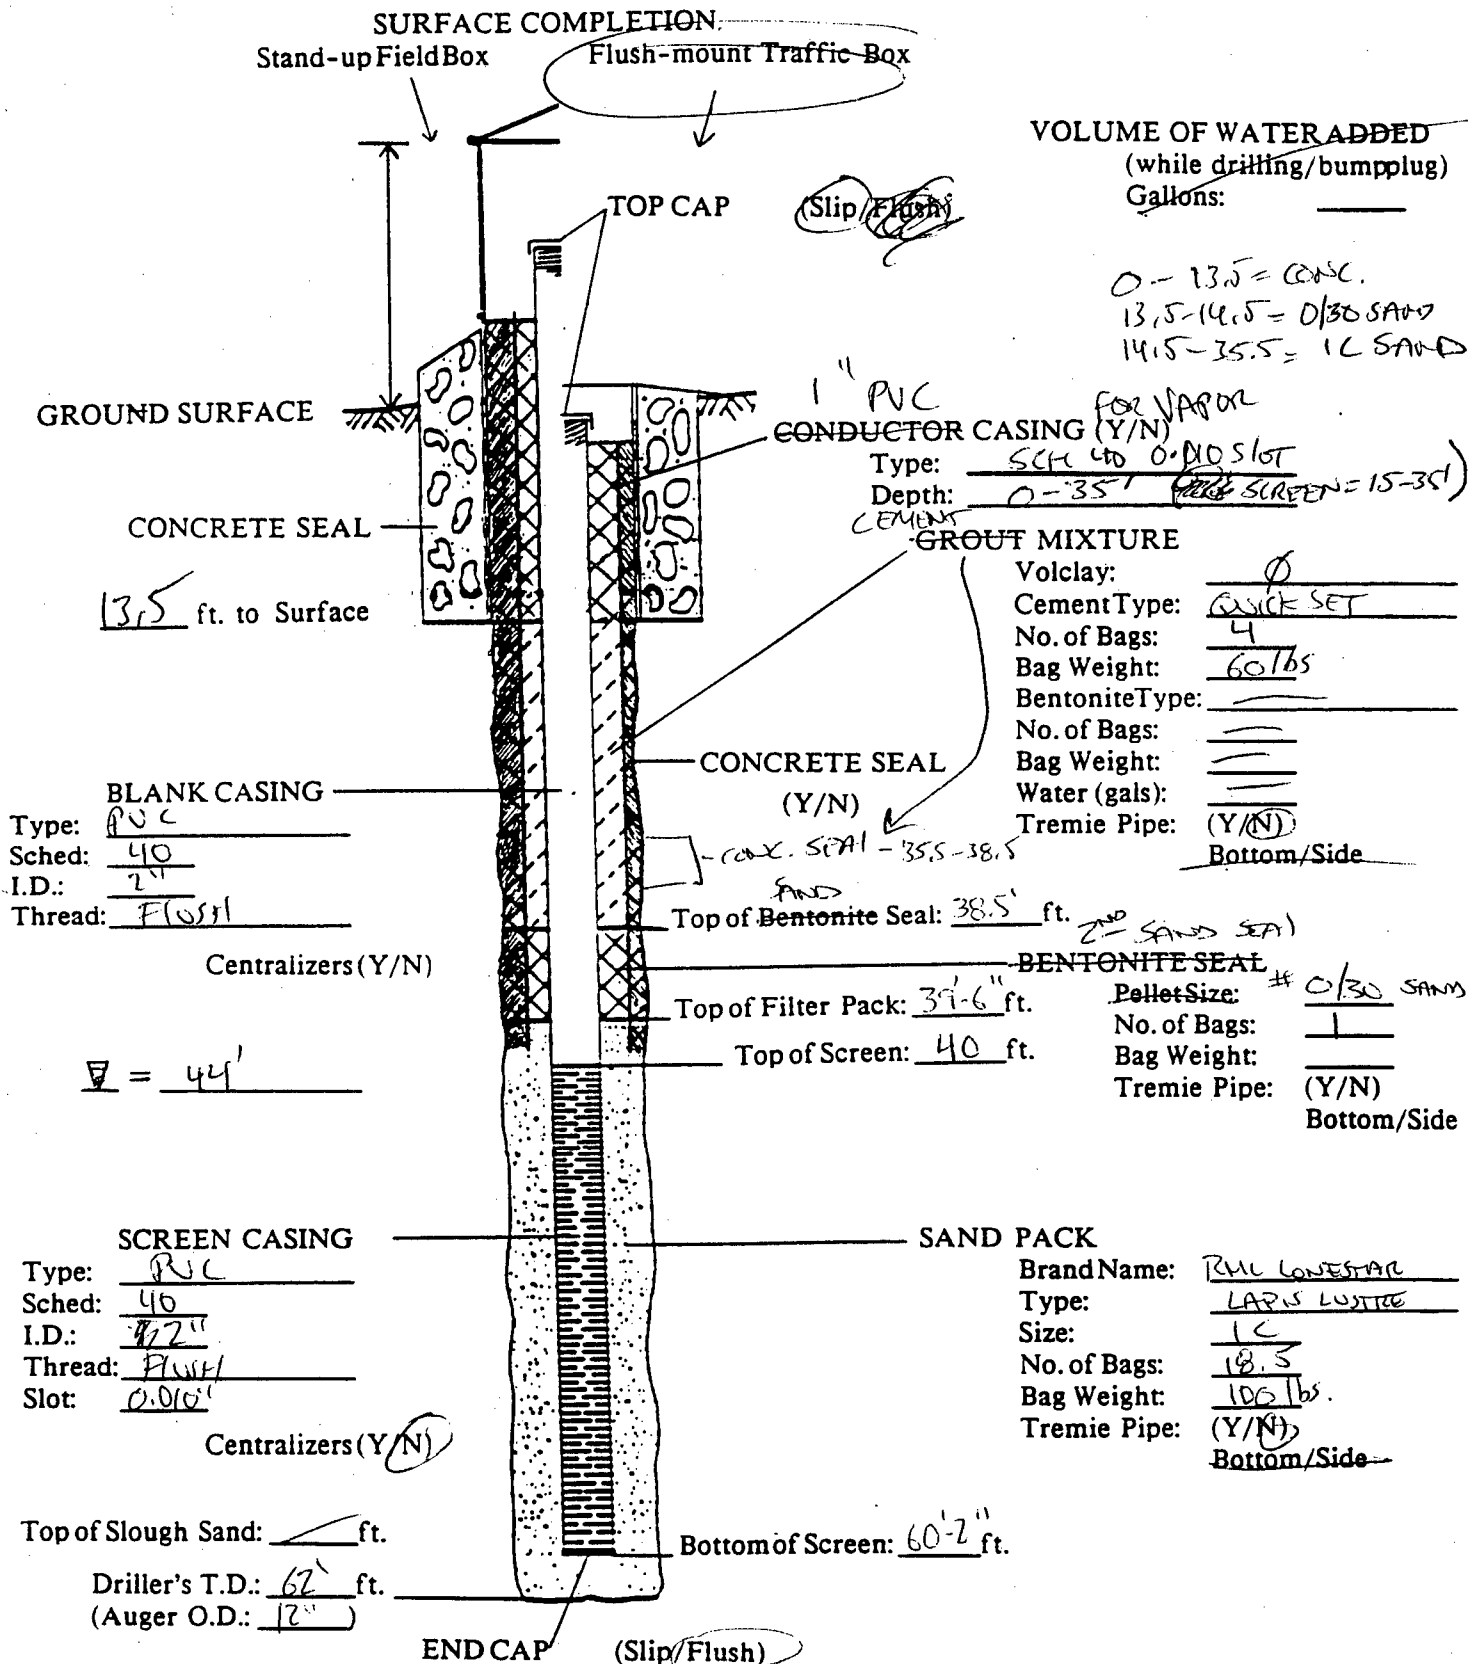 SURFACE COMPLETION
Stand-up Field Box Flush-mount Traffic Box
VOLUME OF WATER ADDED
(while drilling/bumpplug)
Gallons:
TOP CAP (Slip/Flush)
0 - 13.5 = CONC.
13.5-14.5 = 0/30 SAND
14.5-35.5 = 1C SAND
1" PVC FOR VAPOR
GROUND SURFACE
CONDUCTOR CASING (Y/N)
Type: SCH 40 0.010 SLOT
Depth: 0-35' SCREEN = 15-35')
CONCRETE SEAL
CEMENT
GROUT MIXTURE
Volclay: Ø
Cement Type: QUICK SET
No. of Bags: 4
Bag Weight: 60 lbs
Bentonite Type: —
No. of Bags: —
Bag Weight: —
Water (gals): —
Tremie Pipe: (Y/N)
Bottom/Side
13.5 ft. to Surface
CONCRETE SEAL
(Y/N)
- CONC. SEAL - 35.5-38.5
BLANK CASING
Type: PVC
Sched: 40
I.D.: 2"
Thread: FLUSH
Centralizers (Y/N)
SAND
Top of Bentonite Seal: 38.5' ft.
2ND SAND SEAL
BENTONITE SEAL
Pellet Size: # 0/30 SAND
No. of Bags: 1
Bag Weight:
Tremie Pipe: (Y/N)
Bottom/Side
Top of Filter Pack: 39'-6" ft.
Top of Screen: 40 ft.
= 44'
SCREEN CASING
Type: PVC
Sched: 40
I.D.: 2"
Thread: FLUSH
Slot: 0.010"
Centralizers (Y/N)
SAND PACK
Brand Name: RMC LONESTAR
Type: LAPIS LUSTRE
Size: 1C
No. of Bags: 18.5
Bag Weight: 100 lbs.
Tremie Pipe: (Y/N)
Bottom/Side
Top of Slough Sand: — ft.
Bottom of Screen: 60'-2" ft.
Driller's T.D.: 62' ft.
(Auger O.D.: 12")
END CAP (Slip/Flush)